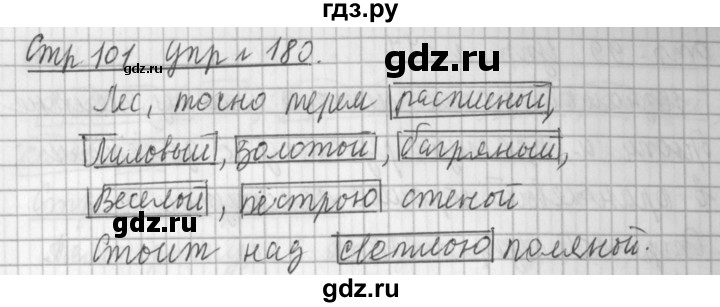 гдз.ру
Стр 101 упр № 180.
gdz.ru
gdz.ru
Лес, точно терем расписной,
Лиловый, золотой, багряный,
Веселой, пёстрою стеной
gdz.ru
Стоит над светлою поляной.
gdz.ru